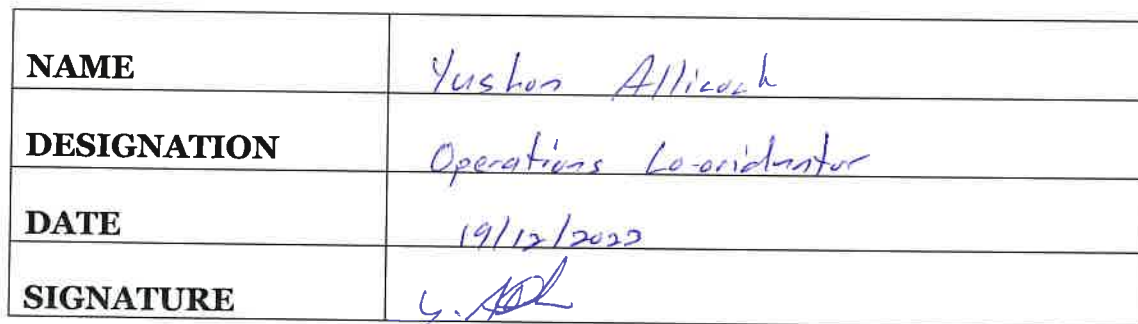 NAME Yushon Allicock
DESIGNATION Operations Co-oridantor
DATE 19/12/2022
SIGNATURE